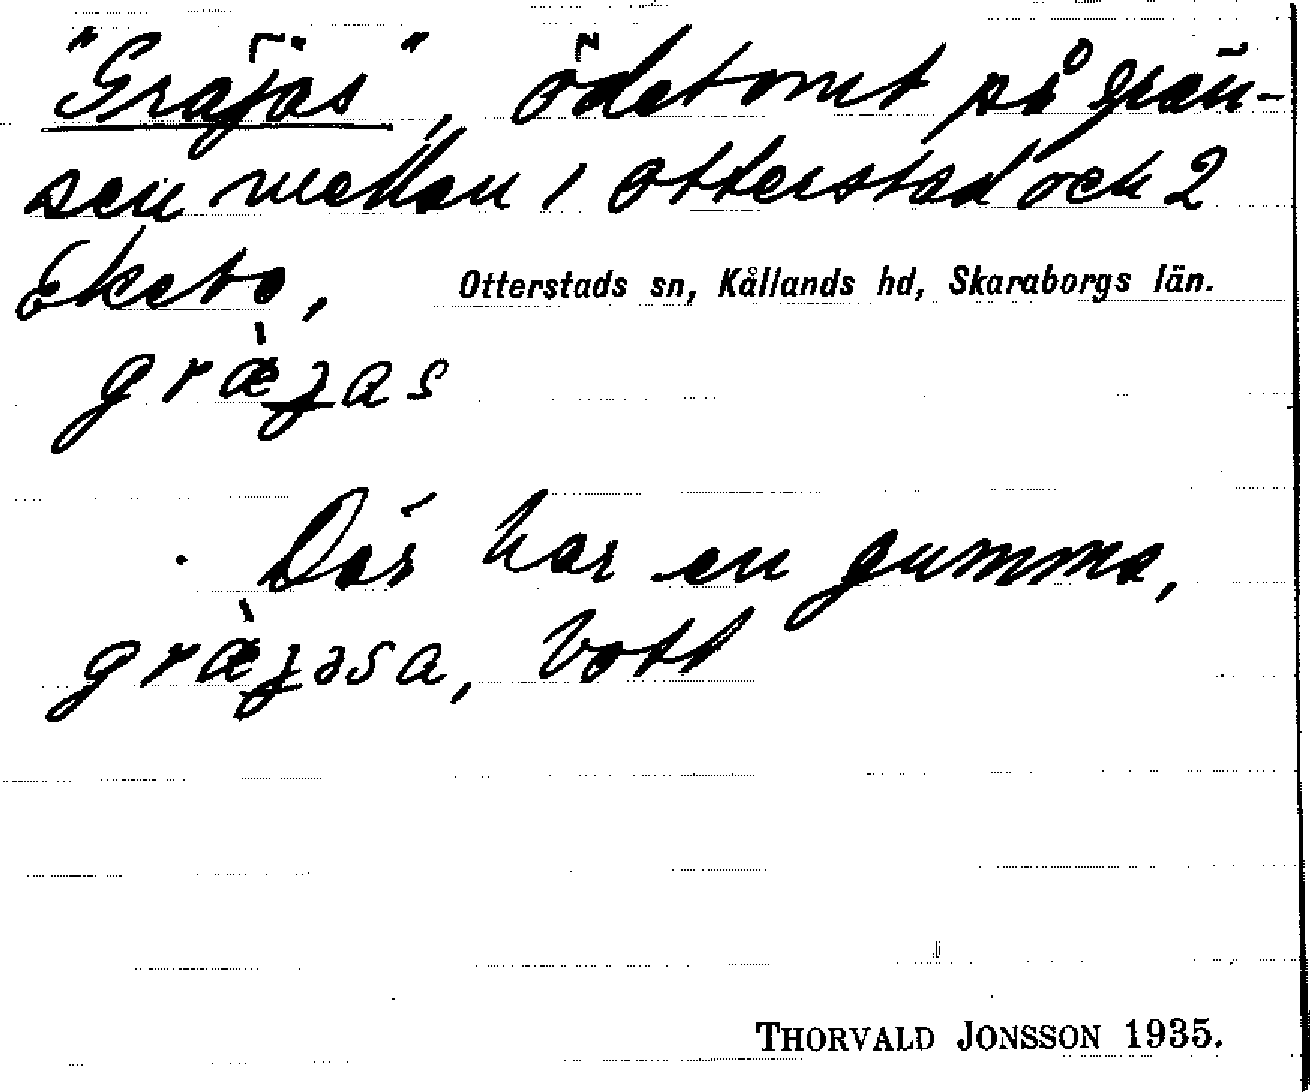 "Gräjas", ödetomt på grän-
sen mellan 1 Otterstad och 2
Ekebo,
Otterstads sn, Kållands hd, Skaraborgs län.
græ̀jas
Där har en gumma,
græ̀jəsa, bott
THORVALD JONSSON 1935.